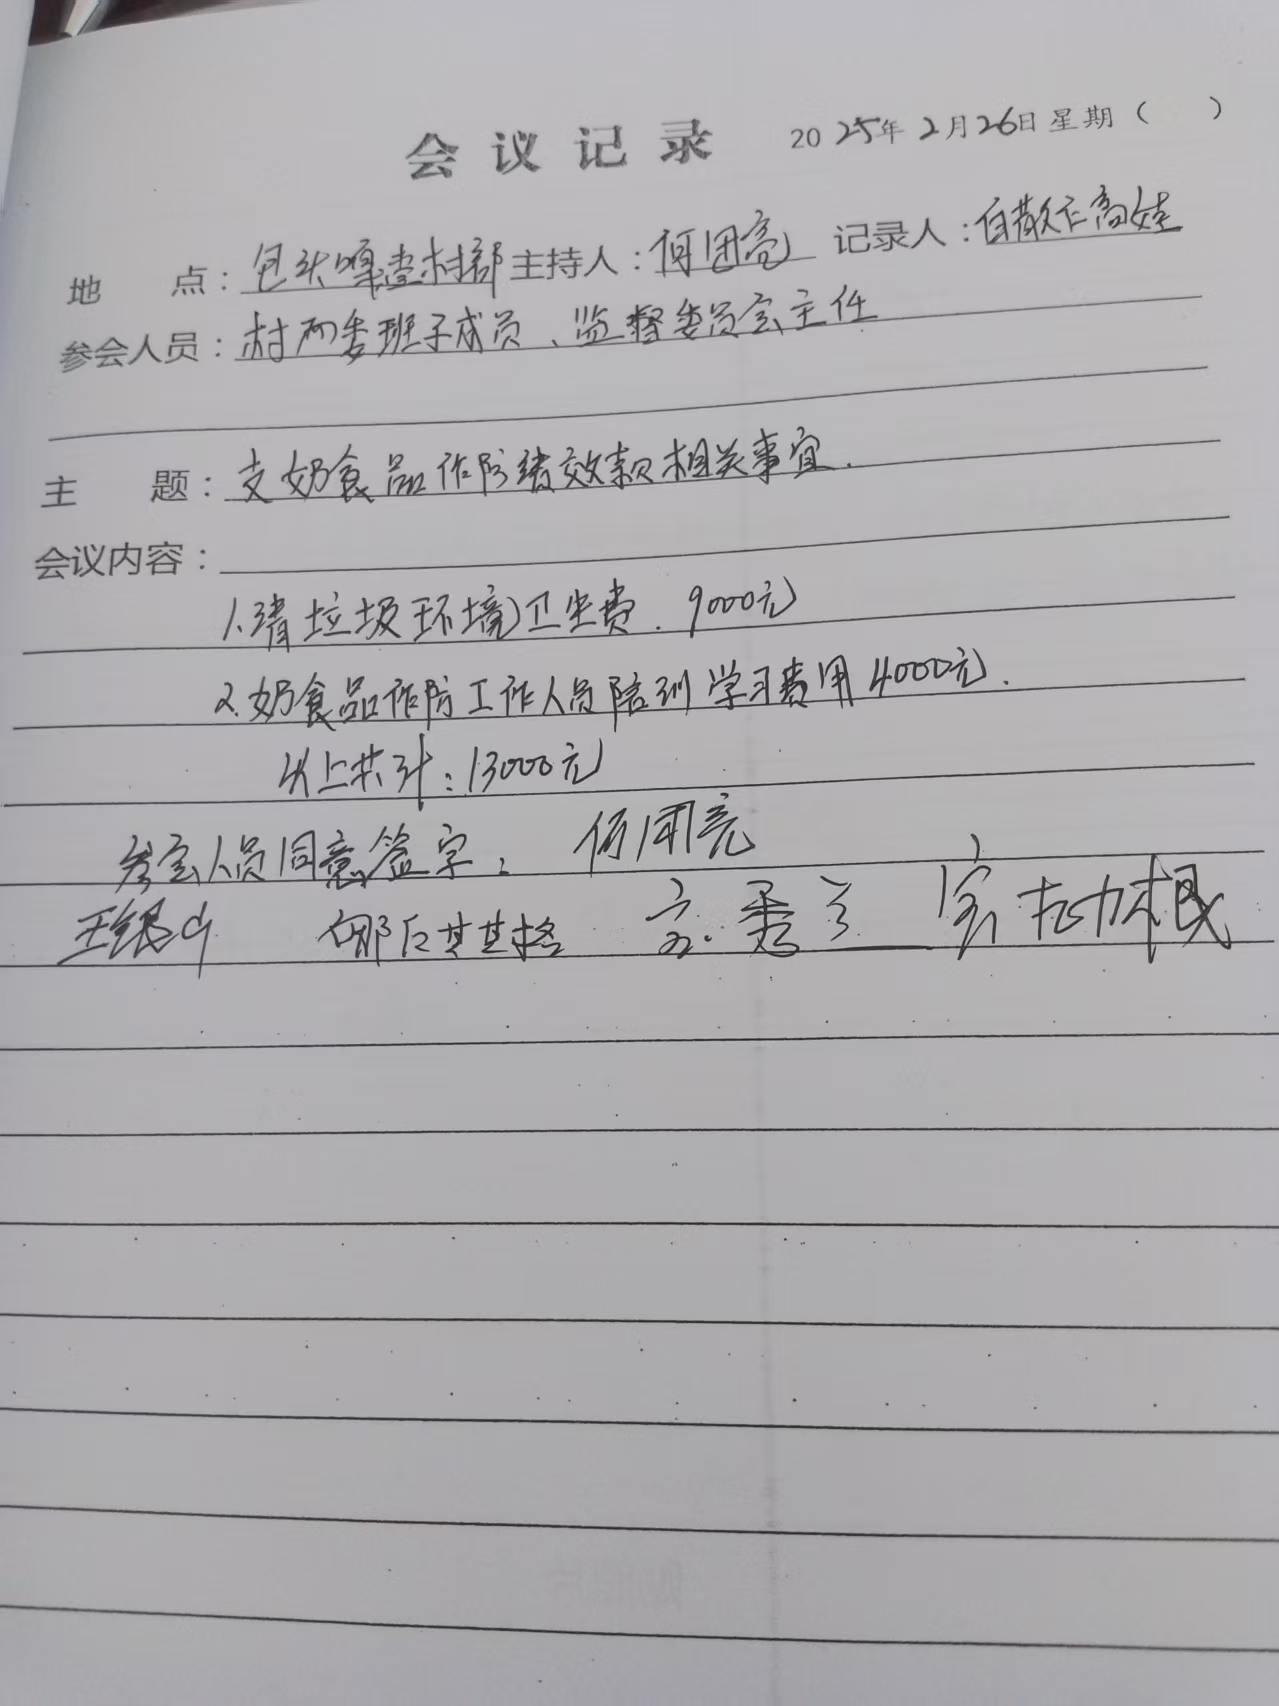 会议记录 2025年2月26日 星期（ ）
地 点：包头嘎查村部 主持人：何团亮 记录人：白散仁高娃
参会人员：村两委班子成员、监督委员会主任
主 题：支奶食品作防绩效款相关事宜.
会议内容：
1.清垃圾环境卫生费. 9000元
2.奶食品作防工作人员陪训学习费用4000元.
以上共计：13000元
参会人员同意签字： 何团亮
王银 哪仁其其格